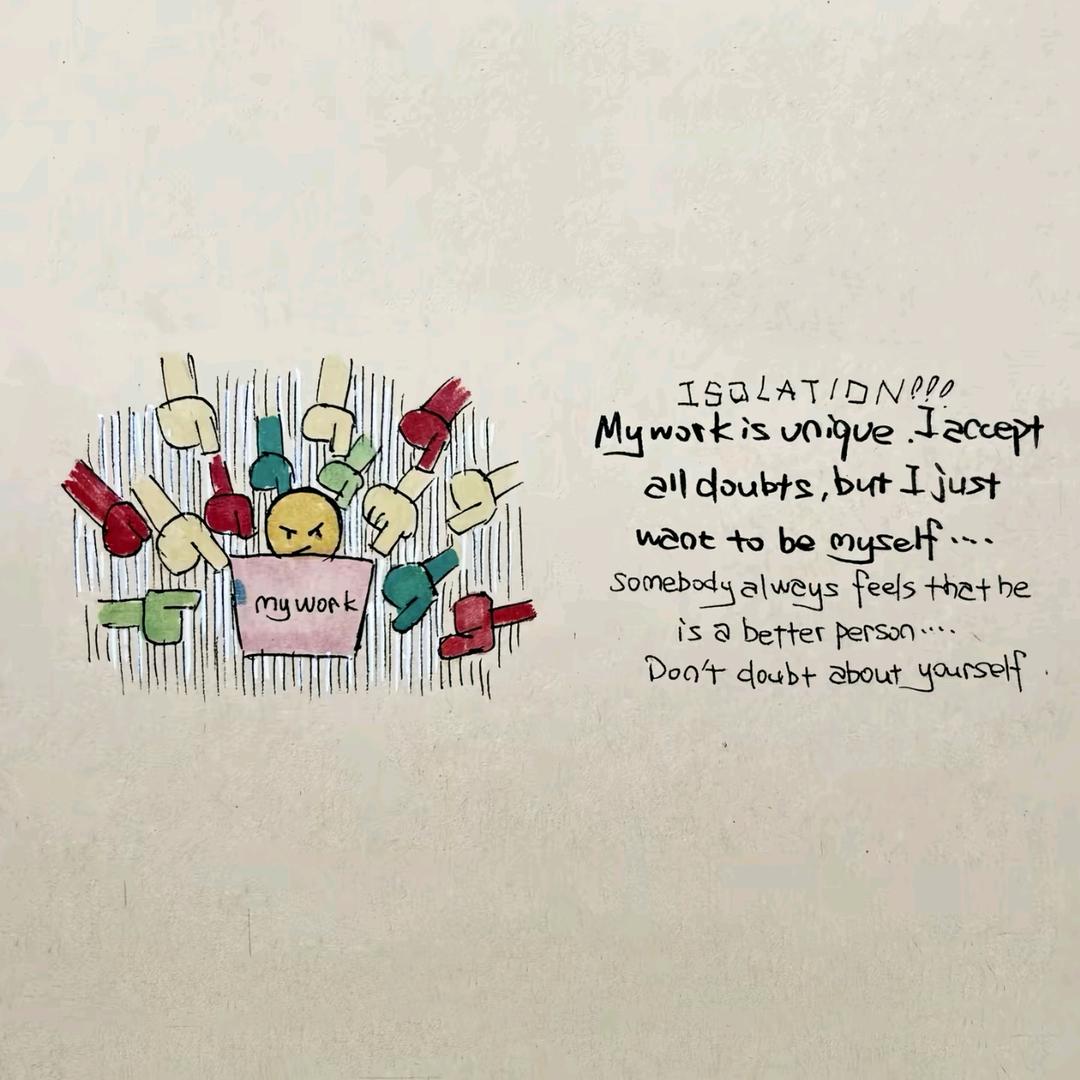 my work
ISOLATION!!!
My work is unique. I accept
all doubts, but I just
want to be myself....
somebody always feels that he
is a better person....
Don't doubt about yourself.